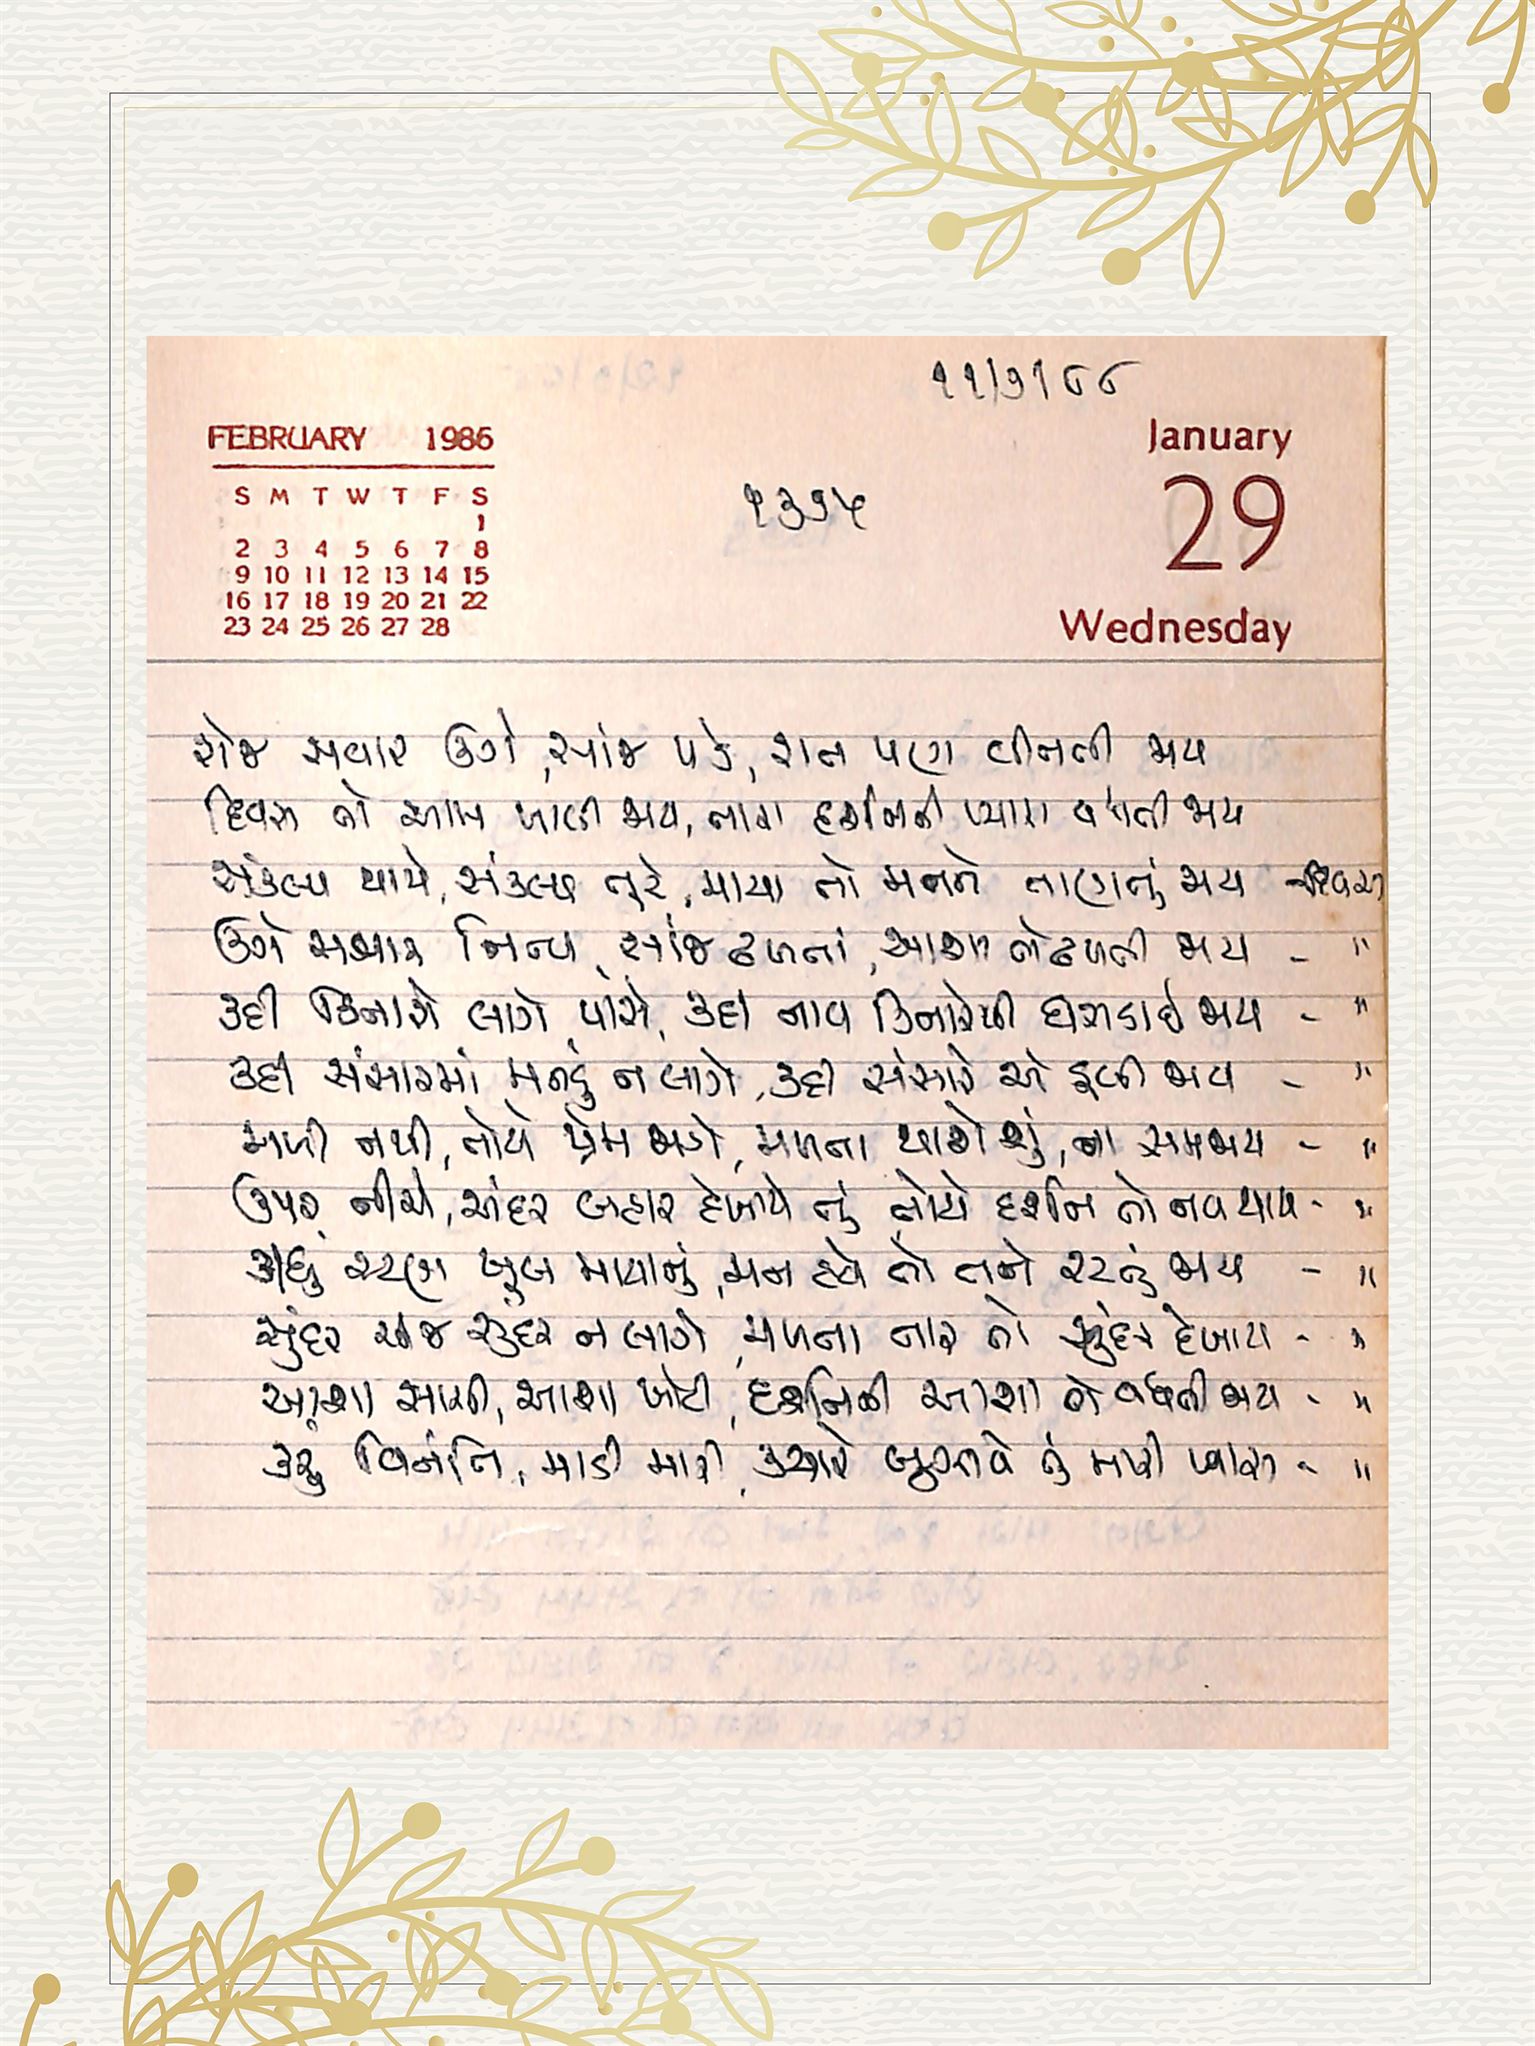 ૨૨/૭/૮૮
FEBRUARY 1986
January
S M T W T F S
1
2 3 4 5 6 7 8
9 10 11 12 13 14 15
16 17 18 19 20 21 22
23 24 25 26 27 28
29
Wednesday
રોજ સવાર ઉગે, સાંજ પડે, રાત પણ વીતતી જાય
દિવસ તો આમ ખાલી જાય, તારા દર્શનની પ્યાસ વધતી જાય
સંકલ્પ થાયે, સંકલ્પ તૂટે, માયા તો મનને તાણતું જાય - દિવસ
ઉગે સવાર નિત્ય, સાંજ ઢળતાં, આશા તો ઢળતી જાય - "
કદી કિનારો લાગે પાસે, કદી નાવ કિનારેથી ઘસડાઈ જાય - "
કદી સંસારમાં મનડું ન લાગે, કદી સંસારે એ ડૂબી જાય - "
મળી નથી, તોયે પ્રેમ જાગે, મળતા થાશે શું, ના સમજાય - "
ઉપર નીચે, અંદર બહાર દેખાયે તું તોયે દર્શન તો નવ થાય - "
કીધું રટણ ખૂબ માયાનું, મન હવે તો તને રટતું જાય - "
સુંદર ચીજ સુંદર ન લાગે, મળતા તાર તો સુંદર દેખાય - "
આશા સાચી, આશા ખોટી, દર્શનની આશા તો વધતી જાય - "
કરું વિનંતિ, માડી મારી, ક્યારે બુઝાવે તું મારી પ્યાસ - "